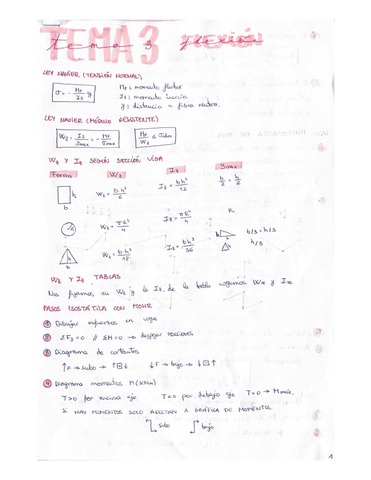 TEMA 3 FLEXIÓN
tema 3 flexión
LEY NAVIER (TENSIÓN NORMAL)
σx = - Mf/Iz · y
Mf = momento flector
Iz = momento inercia
y = distancia a fibra neutra.
LEY NAVIER (MÓDULO RESISTENTE)
Wz = Iz/ymax = Mf/σmax
Mf/Wz ≤ σadm
Wz Y Iz SEGÚN SECCIÓN VIGA
Forma Wz Iz ymax
h b Wz = b·h²/6 Iz = b·h³/12 h/2
Wz = πR³/4 Iz = πR⁴/4 R
h b Iz = b·h³/36 b/3 h/3
Wz Y Iz TABLAS
Nos fijamos en Wz y la Iz, de la tabla cogemos Wx y Ix
PASOS ISOSTÁTICA CON MOHR
① Dibujar esfuerzos en viga
② ΣFy=0 // ΣM=0 → despejar reacciones
③ Diagrama de cortantes
↑F → subo → ↓F → bajo →
④ Diagrama momentos M (kNm)
T>0 por encima eje T<0 por debajo eje T=0 → Mmax.
SI HAY MOMENTOS SOLO AFECTAN A GRÁFICA DE MOMENTOS.
subo bajo
1